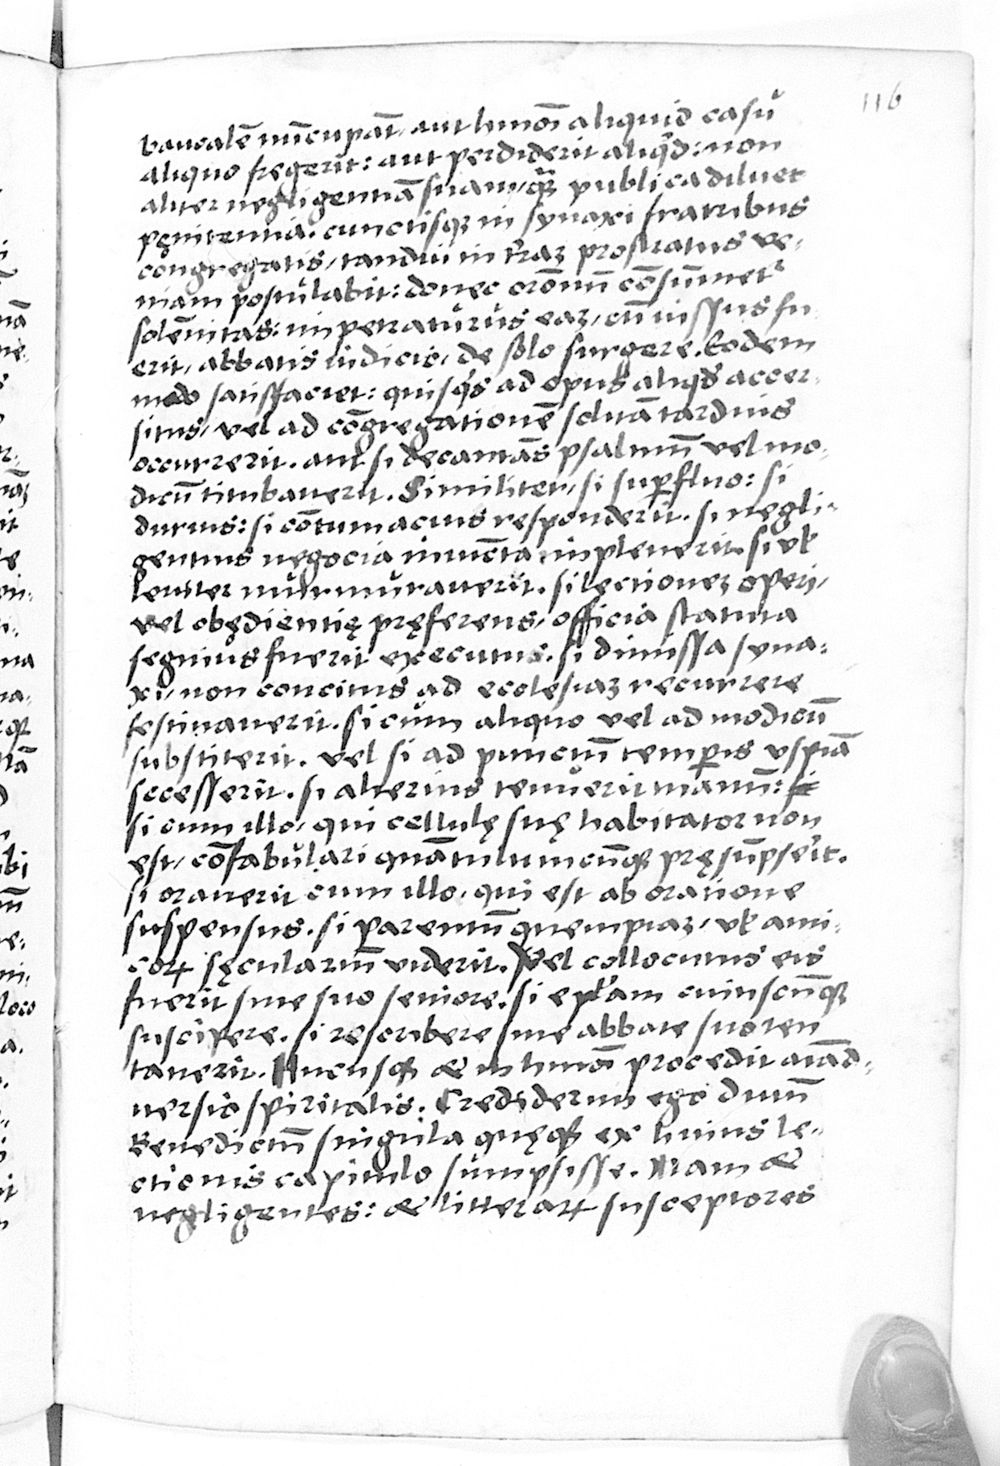 116
baucalē nūcupāt, aut hmōi aliquid casu
aliquo fregerit: aut perdiderit aliqd: non
aliter negligentiā suam, quā publica diluet
pęnitentia. cunctisqꝫ in synaxi fratribus
congregatis, tandiu in terraꝫ prostratus ve-
niam postulabit: donec orōnū cōsūmetr
solēnitas: impetraturus eaꝫ, cū iussus fu
erit, abbatis iudicio, de solo surgere. Eodem
modo satisfaciet: quisqs ad opus aliqd accer-
situs, vel ad cōgregationē solitā tardius
occurrerit. aut si decantās psalmū vel mo-
dicū titubauerit. Similiter, si supfluo: si
durius: si cōtumacius responderit. si negli-
gentius negocia iniuncta impleuerit. si vł
leuiter murmurauerit. si lectioneꝫ operi,
vel obędientię pręferens, officia statuta
segnius fuerit executus. si dimissa syna-
xi, non concitus ad ecclesiaꝫ recurrere
festinauerit. si cum aliquo vel ad modicū
substiterit. vel si ad punctū temporis vspiā
secesserit. si alterius tenuerit manū:
si cum illo, qui cellulę suę habitator non
est, cōfabulari quātulumcūqꝫ pręsūpserit.
si orauerit cum illo, qui est ab oratione
suspensus. si parentū quempiaꝫ, vł ami-
corꝝ sęcularium viderit. Vel collocutus eis
fuerit sine suo seniore. si epłam cuiuscūqꝫ
suscipere. si rescribere sine abbate suo ten
tauerit. Hucusqꝫ & in hmōi procedit aīad-
uersio spiritalis. Crediderim ego diuū
Benedictū singula quęqꝫ ex huius le-
ctionis capitulo sumpsisse. Nam &
negligentes: & litterarꝝ susceptores